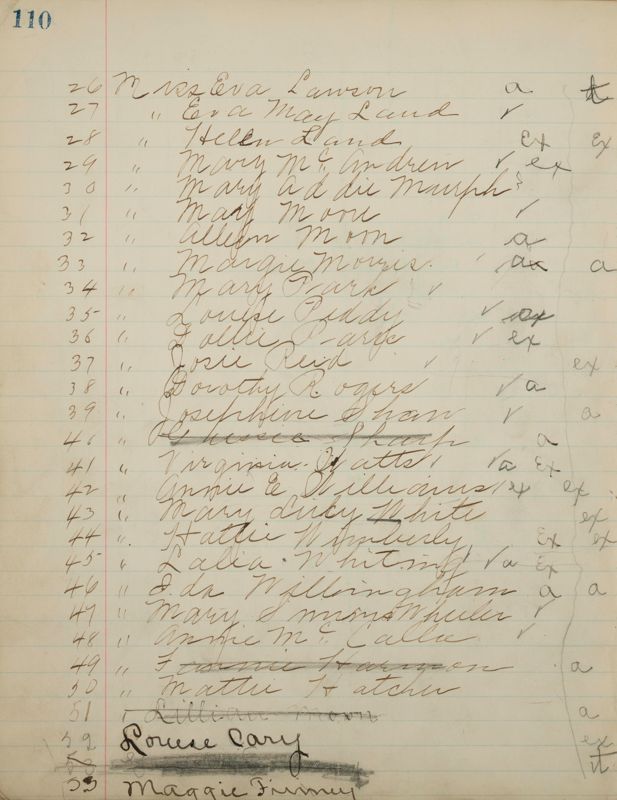 110
26 Miss Eva Lawson a
27 " Eva May Land ✓
28 " Helen Land Ex Ex
29 " Mary McAndrew ✓ ex
30 " Mary Addie Murph
31 " Mary Moon ✓
32 " Alleyn Moon a
33 " Margie Morris. a
34 " Mary Park ✓
35 " Louise Peddy ✓
36 " Lollie Park ✓ ex
37 " Josie Reid ✓ ex
38 " Dorothy Rogers ✓ a
39 " Josephine Shaw ✓ a
40 " Sharp a
41 " Virginia Watts ✓ a Ex
42 " Annie E Williams ex ex
43 " Mary Lucy White ex
44 " Hattie Wimberly Ex ex
45 " Lalia Whiting ✓ a Ex
46 " Eda Willingham a a
47 " Mary Simms Wheeler ✓
48 " Annie McCalla ✓
49 " Harmon a
50 " Mattie Hatcher
51 " Lillian Moon a
52 Louise Cary ex
53 Maggie Finney